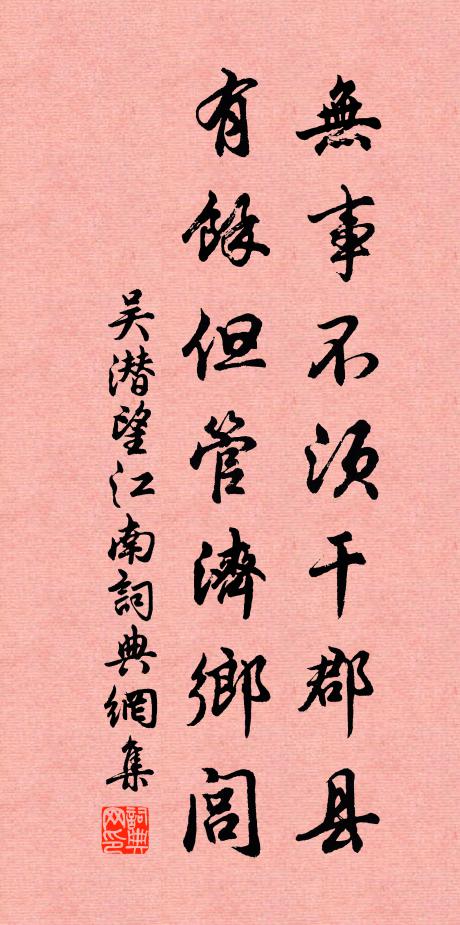 無事不須干郡县
有餘但管濟鄉閭
吴潜望江南詞典網集
詞典网印